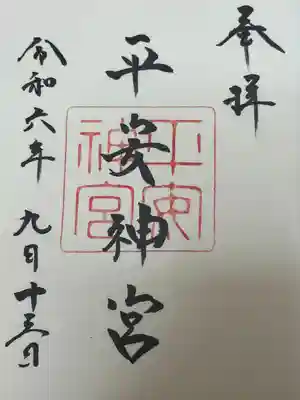 奉拝
平安神宮
平安
神宮
令和六年九月十三日